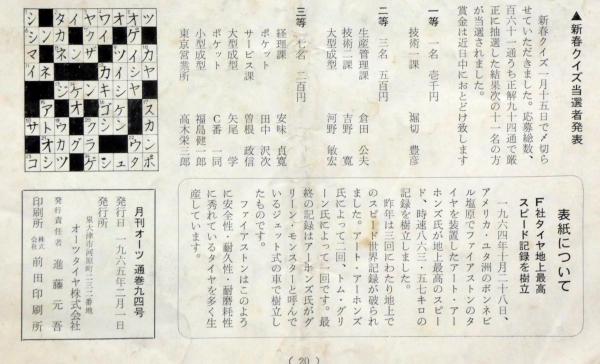 ▲新春クイズ当選者発表
新春クイズ一月十五日で〆切ら
せていただきました。応募総数、
百六十一通うち正解九十四通で厳
正に抽選した結果次の十一名の方
が当選されました。
賞金は近日中におとどけ致します
一等 一名 壱千円
技術一課 堀切 豊彦
二等 三名 五百円
生産管理課 倉田 公夫
技術二課 吉野 寛
大型成型 河野 敏宏
三等 七名 二百円
経理課 安味 貞寛
ポケット 田中 沢次
サービス課 曽根 政信
大型成型 矢尾 学
ポケット C番一同
小型成型 福島健一郎
東京営業所 高木栄三郎
表紙について
F社タイヤ地上最高
スピード記録を樹立
一九六四年十月二十八日、
アメリカ・ユタ洲のボンネビ
ル塩原でファイアストンのタ
イヤを装置したアート・アー
ホンズ氏が地上最高のスピー
ド、時速八六三・五七キロの
記録を樹立しました。
昨年は三回にわたり地上で
のスピード世界記録が破られ
ました。アート・アーホンズ
氏によって二回、トム・グリ
ーン氏によって一回です。最
終の記録はアーホンズ氏がグ
リーン・モンスターと呼んで
いるジェット式の車で樹立し
たものです。
ファイアストンはこのよう
に安全性・耐久性・耐磨耗性
に秀れているタイヤを多く生
産しています。
月刊オーツ 通巻九四号
発行日 一九六五年二月一日
発行所
泉大津市河原町二三二番地
オーツタイヤ株式会社
発行責任者 進藤元吾
印刷所 株式会社 前田印刷所
(20)